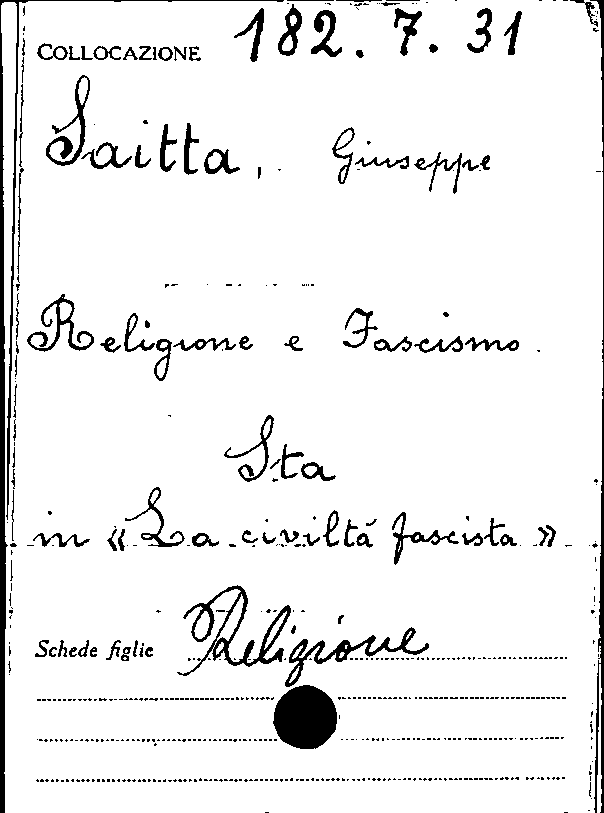 COLLOCAZIONE 182.7.31
Saitta, Giuseppe
Religione e Fascismo.
Sta
in « La civiltá fascista »
Schede figlie Religione